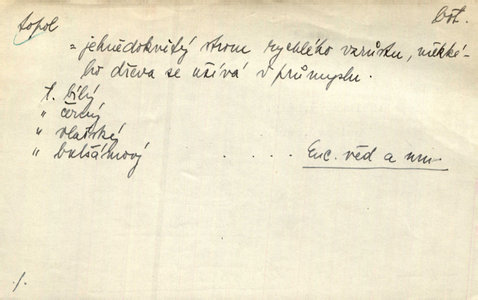 topol bot.
= jehnědokvětý strom rychlého vzrůstu, měkké-
ho dřeva se užívá v průmyslu.
t. bílý
" černý
" vlašský
" balsámový . . . . Enc. věd a um.
./.